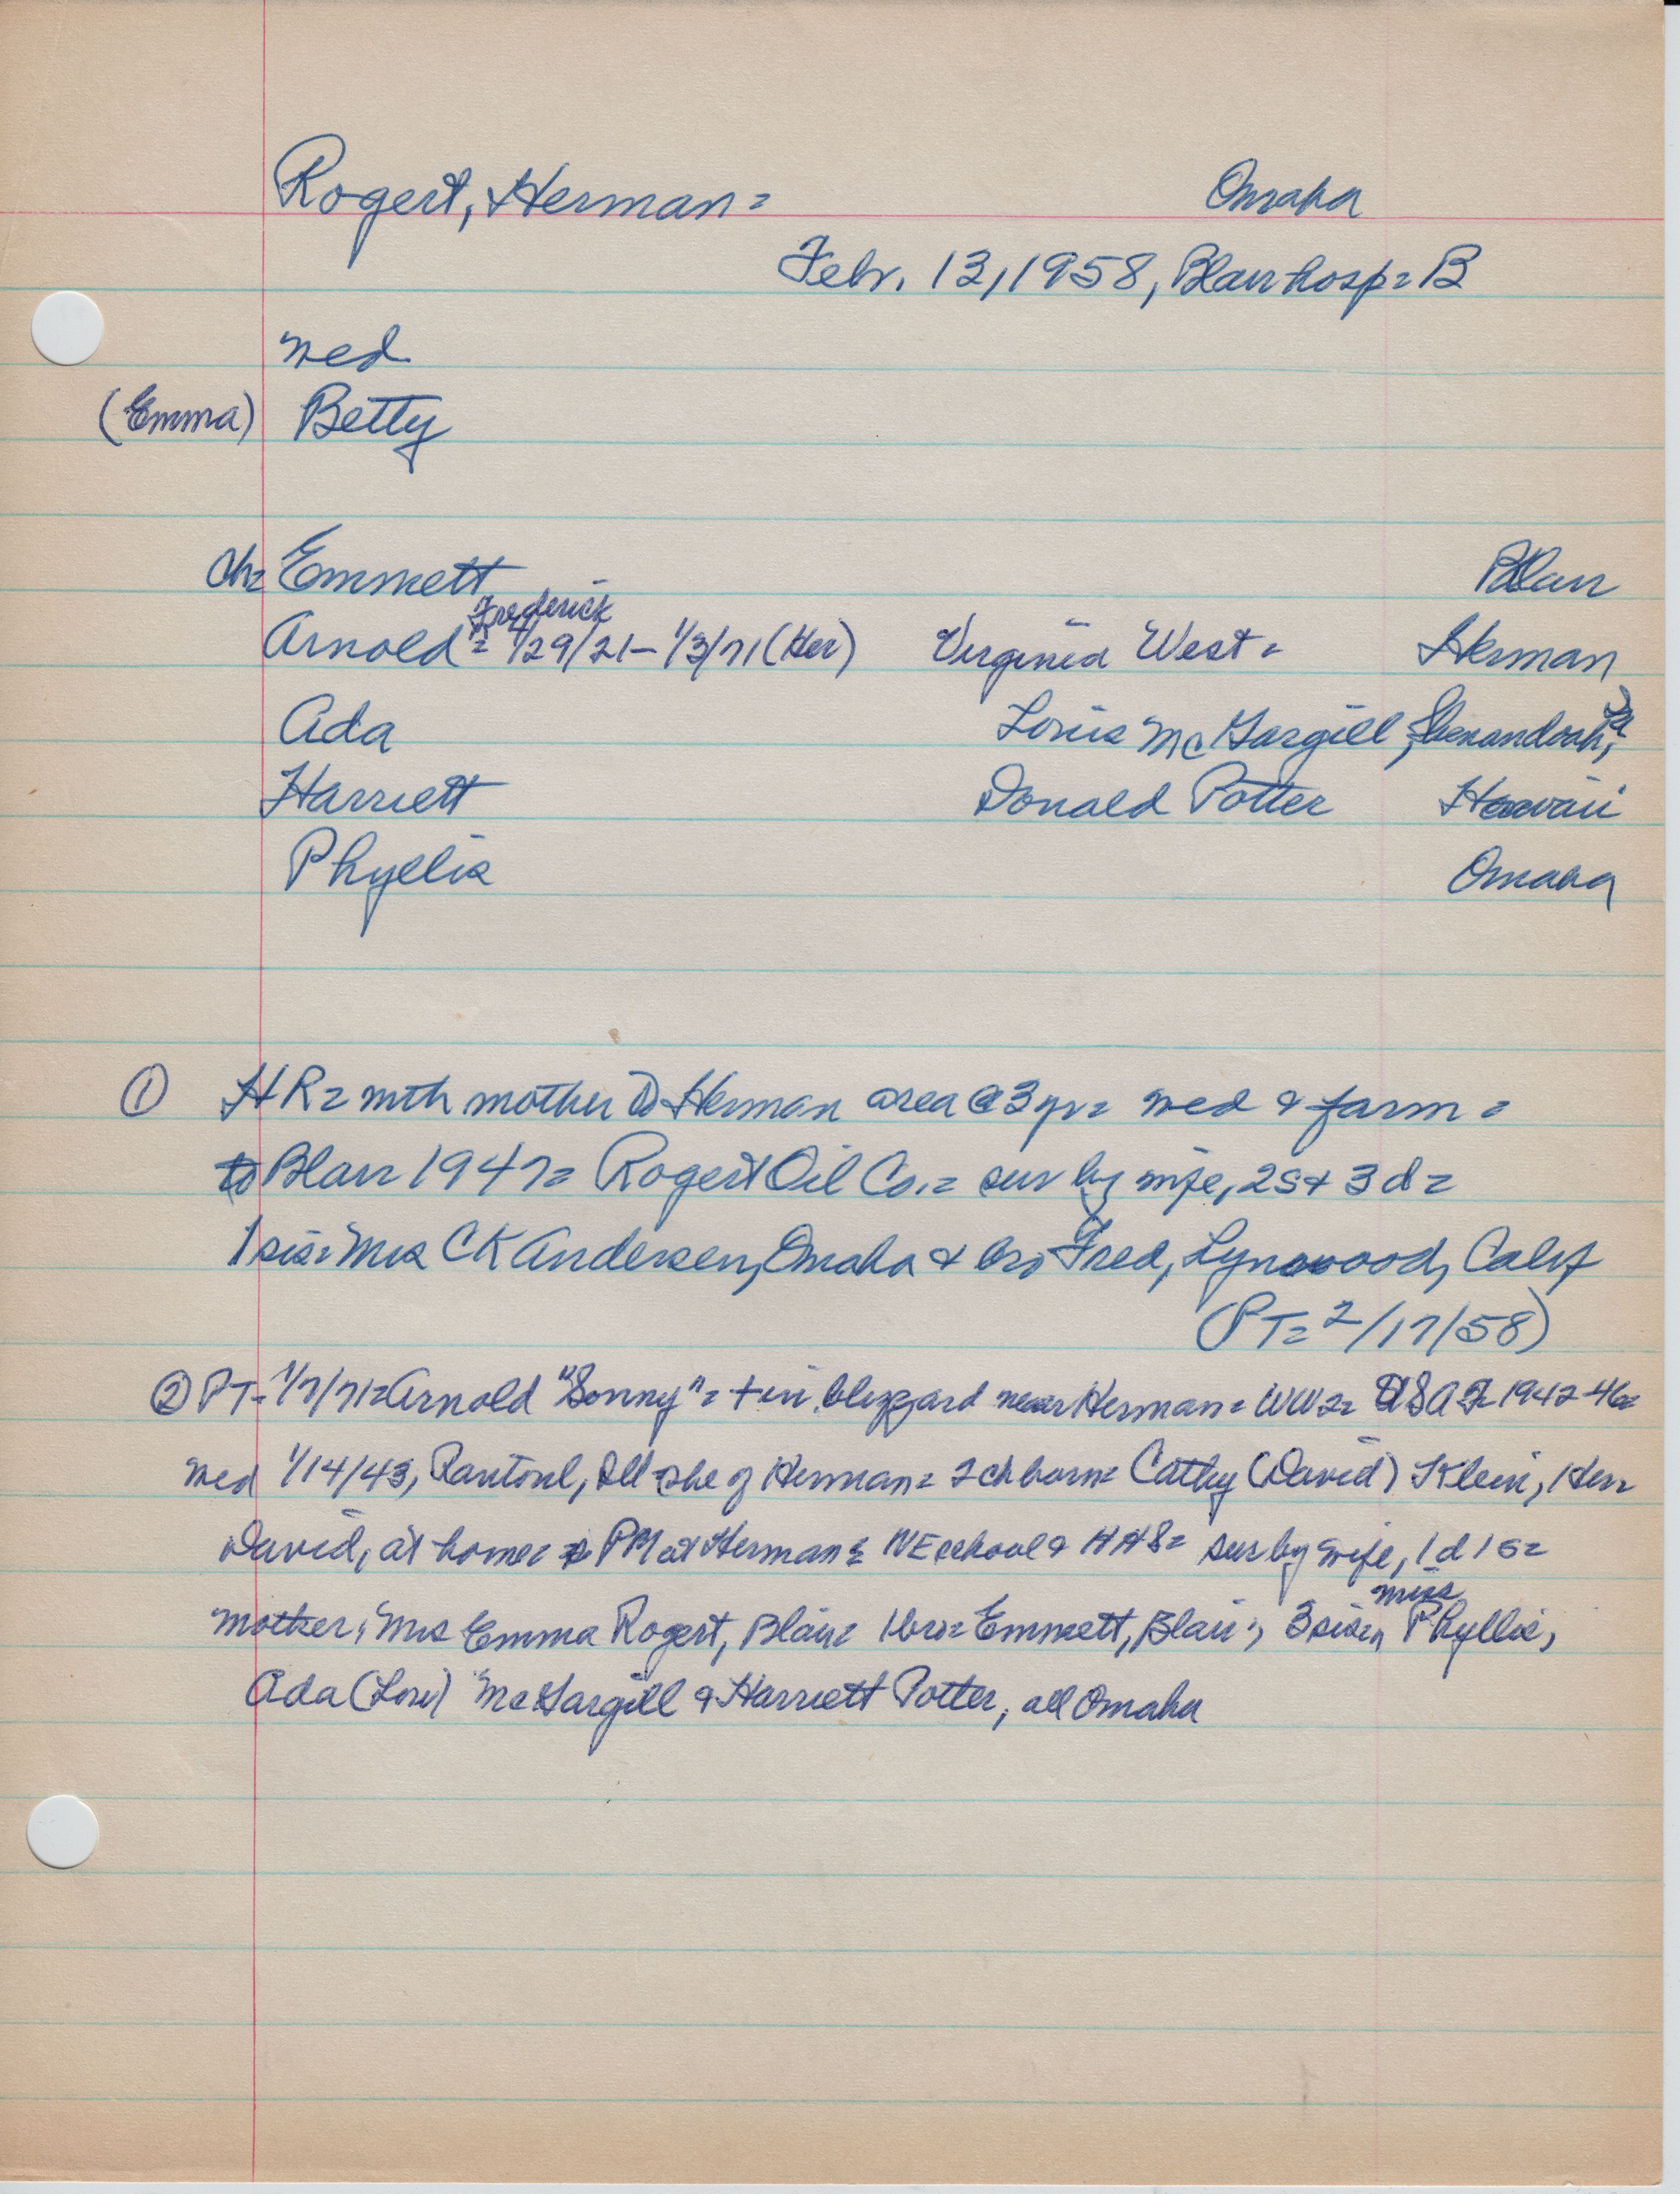 Rogert, Herman = Omaha
Febr. 13, 1958, Blair hosp = B
wed
(Emma) Betty
Ch = Emmett Blair
Frederick
Arnold = 4/29/21 – 1/3/71 (Her) Virginia West = Herman
Ada Loris McGargill, Shenandoah, Ia
Harriett Donald Potter Hawaii
Phyllis Omaha
① HR = with mother to Herman area @ 3 yr = wed & farm =
to Blair 1947 = Rogert Oil Co. = sur by wife, 2s + 3d =
1 sis = Mrs CK Andersen, Omaha & bro Fred, Lynwood, Calif
(PT = 2/17/58)
② PT - 1/7/71 = Arnold "Sonny" = + in blizzard near Herman = WW2 = USAF = 1942-46 =
wed 1/14/43, Rantoul, Ill she of Herman = 2 ch born = Cathy (David) Klein, Her =
David, at home = PM at Herman = NE school & HHS = sur by wife, 1d 1s =
miss
mother; Mrs Emma Rogert, Blair = 1 bro = Emmett, Blair; 3 sis = Phyllis,
Ada (Loris) McGargill & Harriett Potter, all Omaha